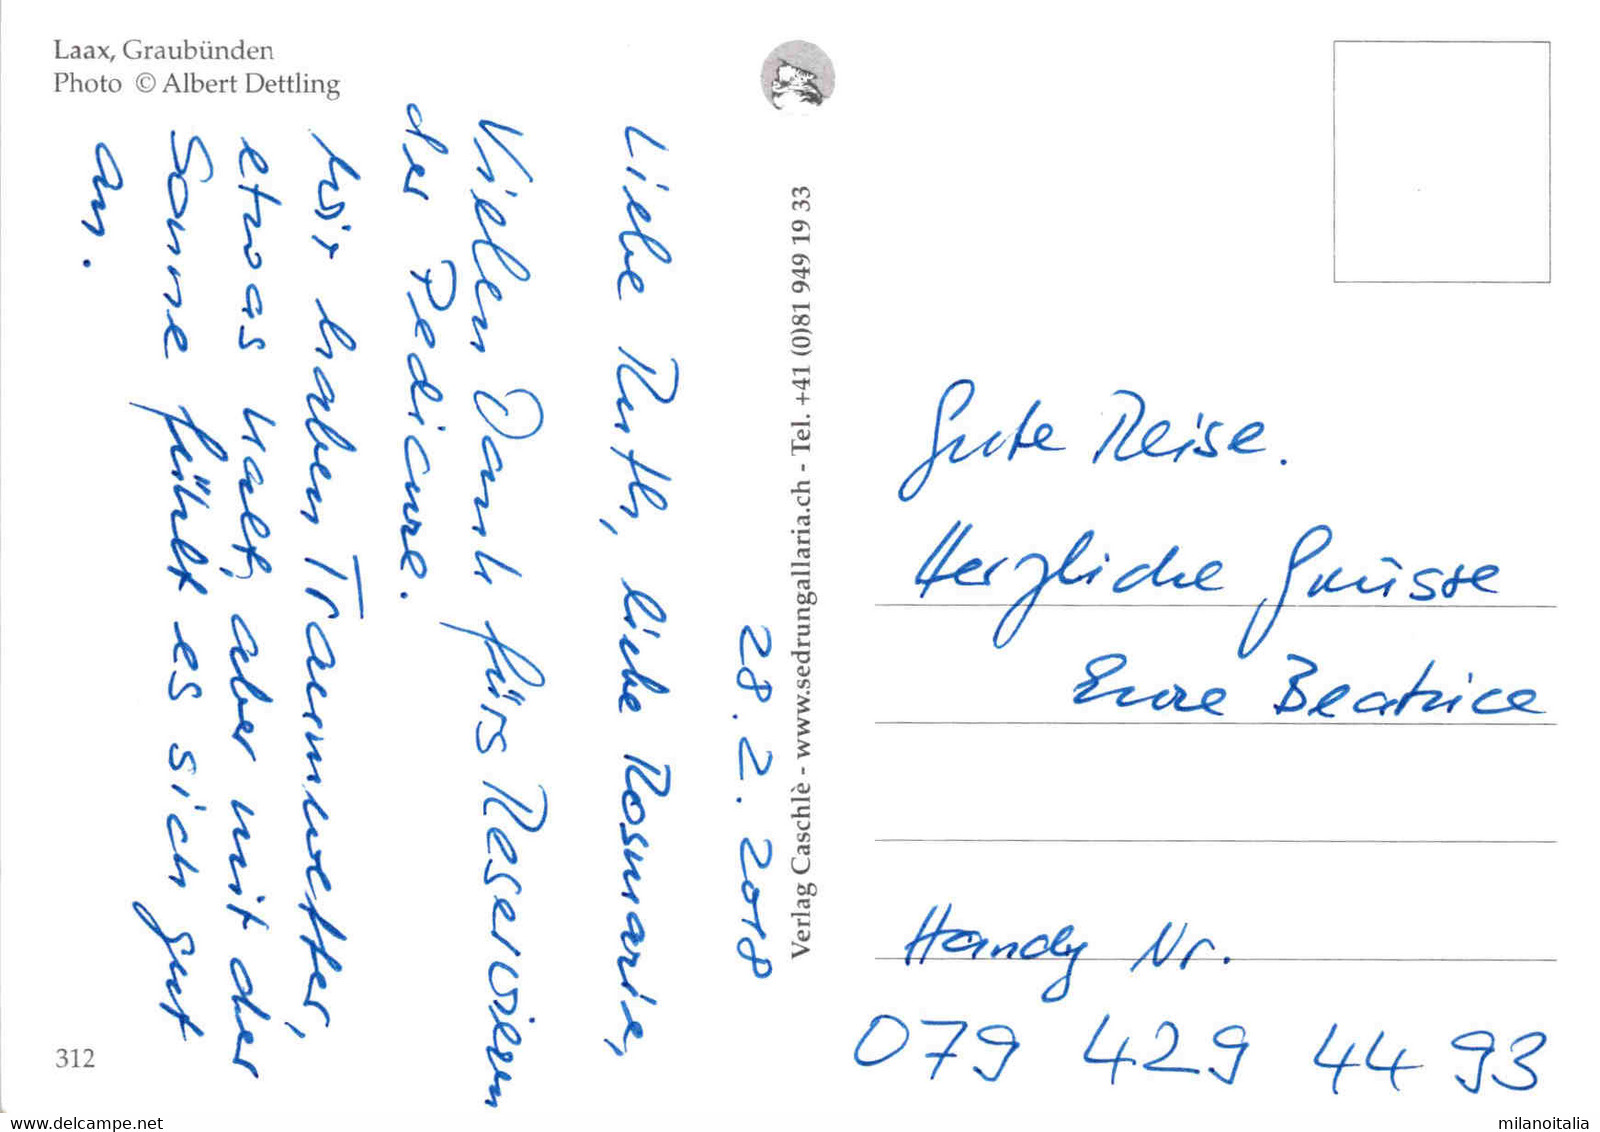 Laax, Graubünden
Photo © Albert Dettling
28.2.2018
Liebe Ruth, liebe Rosmarie,
Vielen Dank fürs Reservieren
der Pedicure.
Wir haben Traumwetter,
etwas kalt, aber mit der
Sonne fühlt es sich gut
an.
312
Verlag Caschlè - www.sedrungallaria.ch - Tel. +41 (0)81 949 19 33
Gute Reise.
Herzliche Grüsse
Eure Beatrice
Handy Nr.
079 429 44 93
www.delcampe.net
milanoitalia